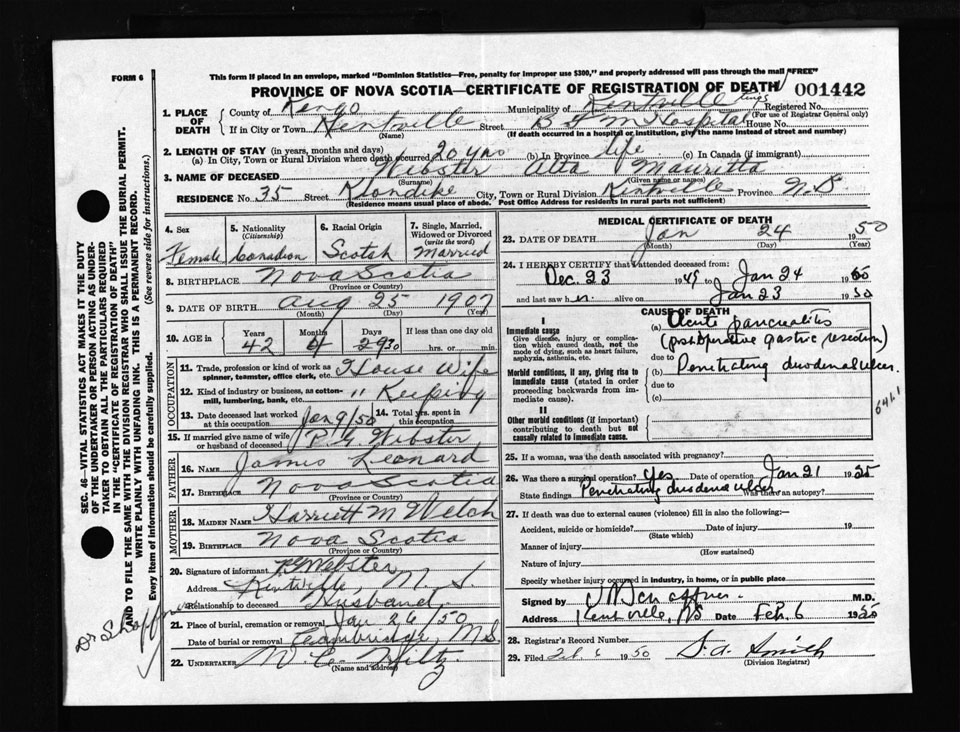 FORM 6
This form if placed in an envelope, marked "Dominion Statistics—Free, penalty for improper use $300," and properly addressed will pass through the mail "FREE"
PROVINCE OF NOVA SCOTIA—CERTIFICATE OF REGISTRATION OF DEATH 001442
1. PLACE OF DEATH County of Kings Municipality of Kentville Kings Registered No. (For use of Registrar General only)
If in City or Town Kentville (Name) Street B F M Hospital House No.
(If death occurred in a hospital or institution, give the name instead of street and number)
2. LENGTH OF STAY (in years, months and days)
(a) In City, Town or Rural Division where death occurred 20 yrs (b) In Province life (c) In Canada (if immigrant)
3. NAME OF DECEASED Webster Alta Mauritta
(Surname) (Given name or names)
RESIDENCE No. 35 Street Klondike City, Town or Rural Division Kentville Province N.S.
(Residence means usual place of abode. Post Office Address for residents in rural parts not sufficient)
4. Sex Female
5. Nationality (Citizenship) Canadian
6. Racial Origin Scotch
7. Single, Married, Widowed or Divorced (write the word) Married
8. BIRTHPLACE Nova Scotia
(Province or Country)
9. DATE OF BIRTH Aug 25 1907
(Month) (Day) (Year)
10. AGE in Years Months Days If less than one day old
42 4 30 hrs. or min.
OCCUPATION
11. Trade, profession or kind of work as spinner, teamster, office clerk, etc. House wife
12. Kind of industry or business, as cotton-mill, lumbering, bank, etc. " Keeping
13. Date deceased last worked at this occupation Jan 9/50
14. Total yrs. spent in this occupation
15. If married give name of wife or husband of deceased P. G. Webster
FATHER
16. Name James Leonard
17. Birthplace Nova Scotia
(Province or Country)
MOTHER
18. MAIDEN NAME Harriett M Welch
19. BIRTHPLACE Nova Scotia
(Province or Country)
20. Signature of informant P G Webster
Address Kentville, N. S.
Relationship to deceased Husband
21. Place of burial, cremation or removal
Date of burial or removal Jan 26/50
Cambridge, N.S.
22. UNDERTAKER W. C. Hiltz
(Name and address)
MEDICAL CERTIFICATE OF DEATH
23. DATE OF DEATH Jan 24 1950
(Month) (Day) (Year)
24. I HEREBY CERTIFY that I attended deceased from:
Dec. 23 1949 to Jan 24 1950
and last saw h er alive on Jan 23 1950
CAUSE OF DEATH
I
Immediate cause
Give disease, injury or complication which caused death, not the mode of dying, such as heart failure, asphyxia, asthenia, etc.
(a) Acute pancreatitis
(postoperative gastric resection)
due to
Morbid conditions, if any, giving rise to immediate cause (stated in order proceeding backwards from immediate cause).
(b) Penetrating duodenal ulcer.
due to
(c)
641.1
II
Other morbid conditions (if important) contributing to death but not causally related to immediate cause.
25. If a woman, was the death associated with pregnancy?
26. Was there a surgical operation? Yes Date of operation Jan 21 1950
State findings Penetrating duodenal ulcer Was there an autopsy?
27. If death was due to external causes (violence) fill in also the following:—
Accident, suicide or homicide? Date of injury 19
(State which)
Manner of injury
(How sustained)
Nature of injury
Specify whether injury occurred in industry, in home, or in public place
Signed by M.D.
Address Kentville, NS Date Feb. 6 1950
28. Registrar's Record Number
29. Filed Feb. 6 1950 S. A. Smith
(Division Registrar)
SEC. 46—VITAL STATISTICS ACT MAKES IT THE DUTY
OF THE UNDERTAKER OR PERSON ACTING AS UNDER-
TAKER TO OBTAIN ALL THE PARTICULARS REQUIRED
IN THE "CERTIFICATE OF REGISTRATION OF DEATH"
AND TO FILE THE SAME WITH THE DIVISION REGISTRAR WHO SHALL ISSUE THE BURIAL PERMIT.
WRITE PLAINLY WITH UNFADING INK. THIS IS A PERMANENT RECORD.
Every item of information should be carefully supplied. (See reverse side for instructions.)
Dr Shaffner